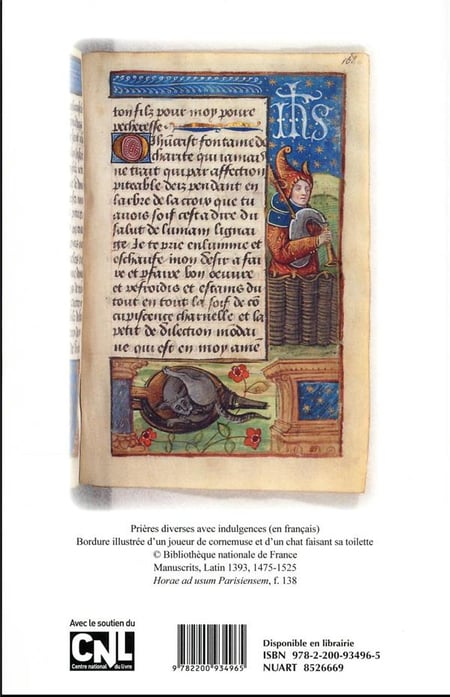 ton filz pour moy povre
pecheresse
O Jhucrist fontaine de
charite qui iamais
ne trait qui par affection
piteable de toy pendant en
larbre de la croix que tu
avois soif cest a dire du
salut de lumain lignai
ge Je te prie enlumine et
eschaufe mon desir a fai
re et pfaire bon oeuvre
et refroidis et estains du
tout en tout la soif de co
cupiscence charnelle et la
petit de dilection modai
ne qui est en moy amē
ihs
Prières diverses avec indulgences (en français)
Bordure illustrée d'un joueur de cornemuse et d'un chat faisant sa toilette
© Bibliothèque nationale de France
Manuscrits, Latin 1393, 1475-1525
Horae ad usum Parisiensem, f. 138
Avec le soutien du
CNL
Centre national du livre
9 782200 934965
Disponible en librairie
ISBN 978-2-200-93496-5
NUART 8526669